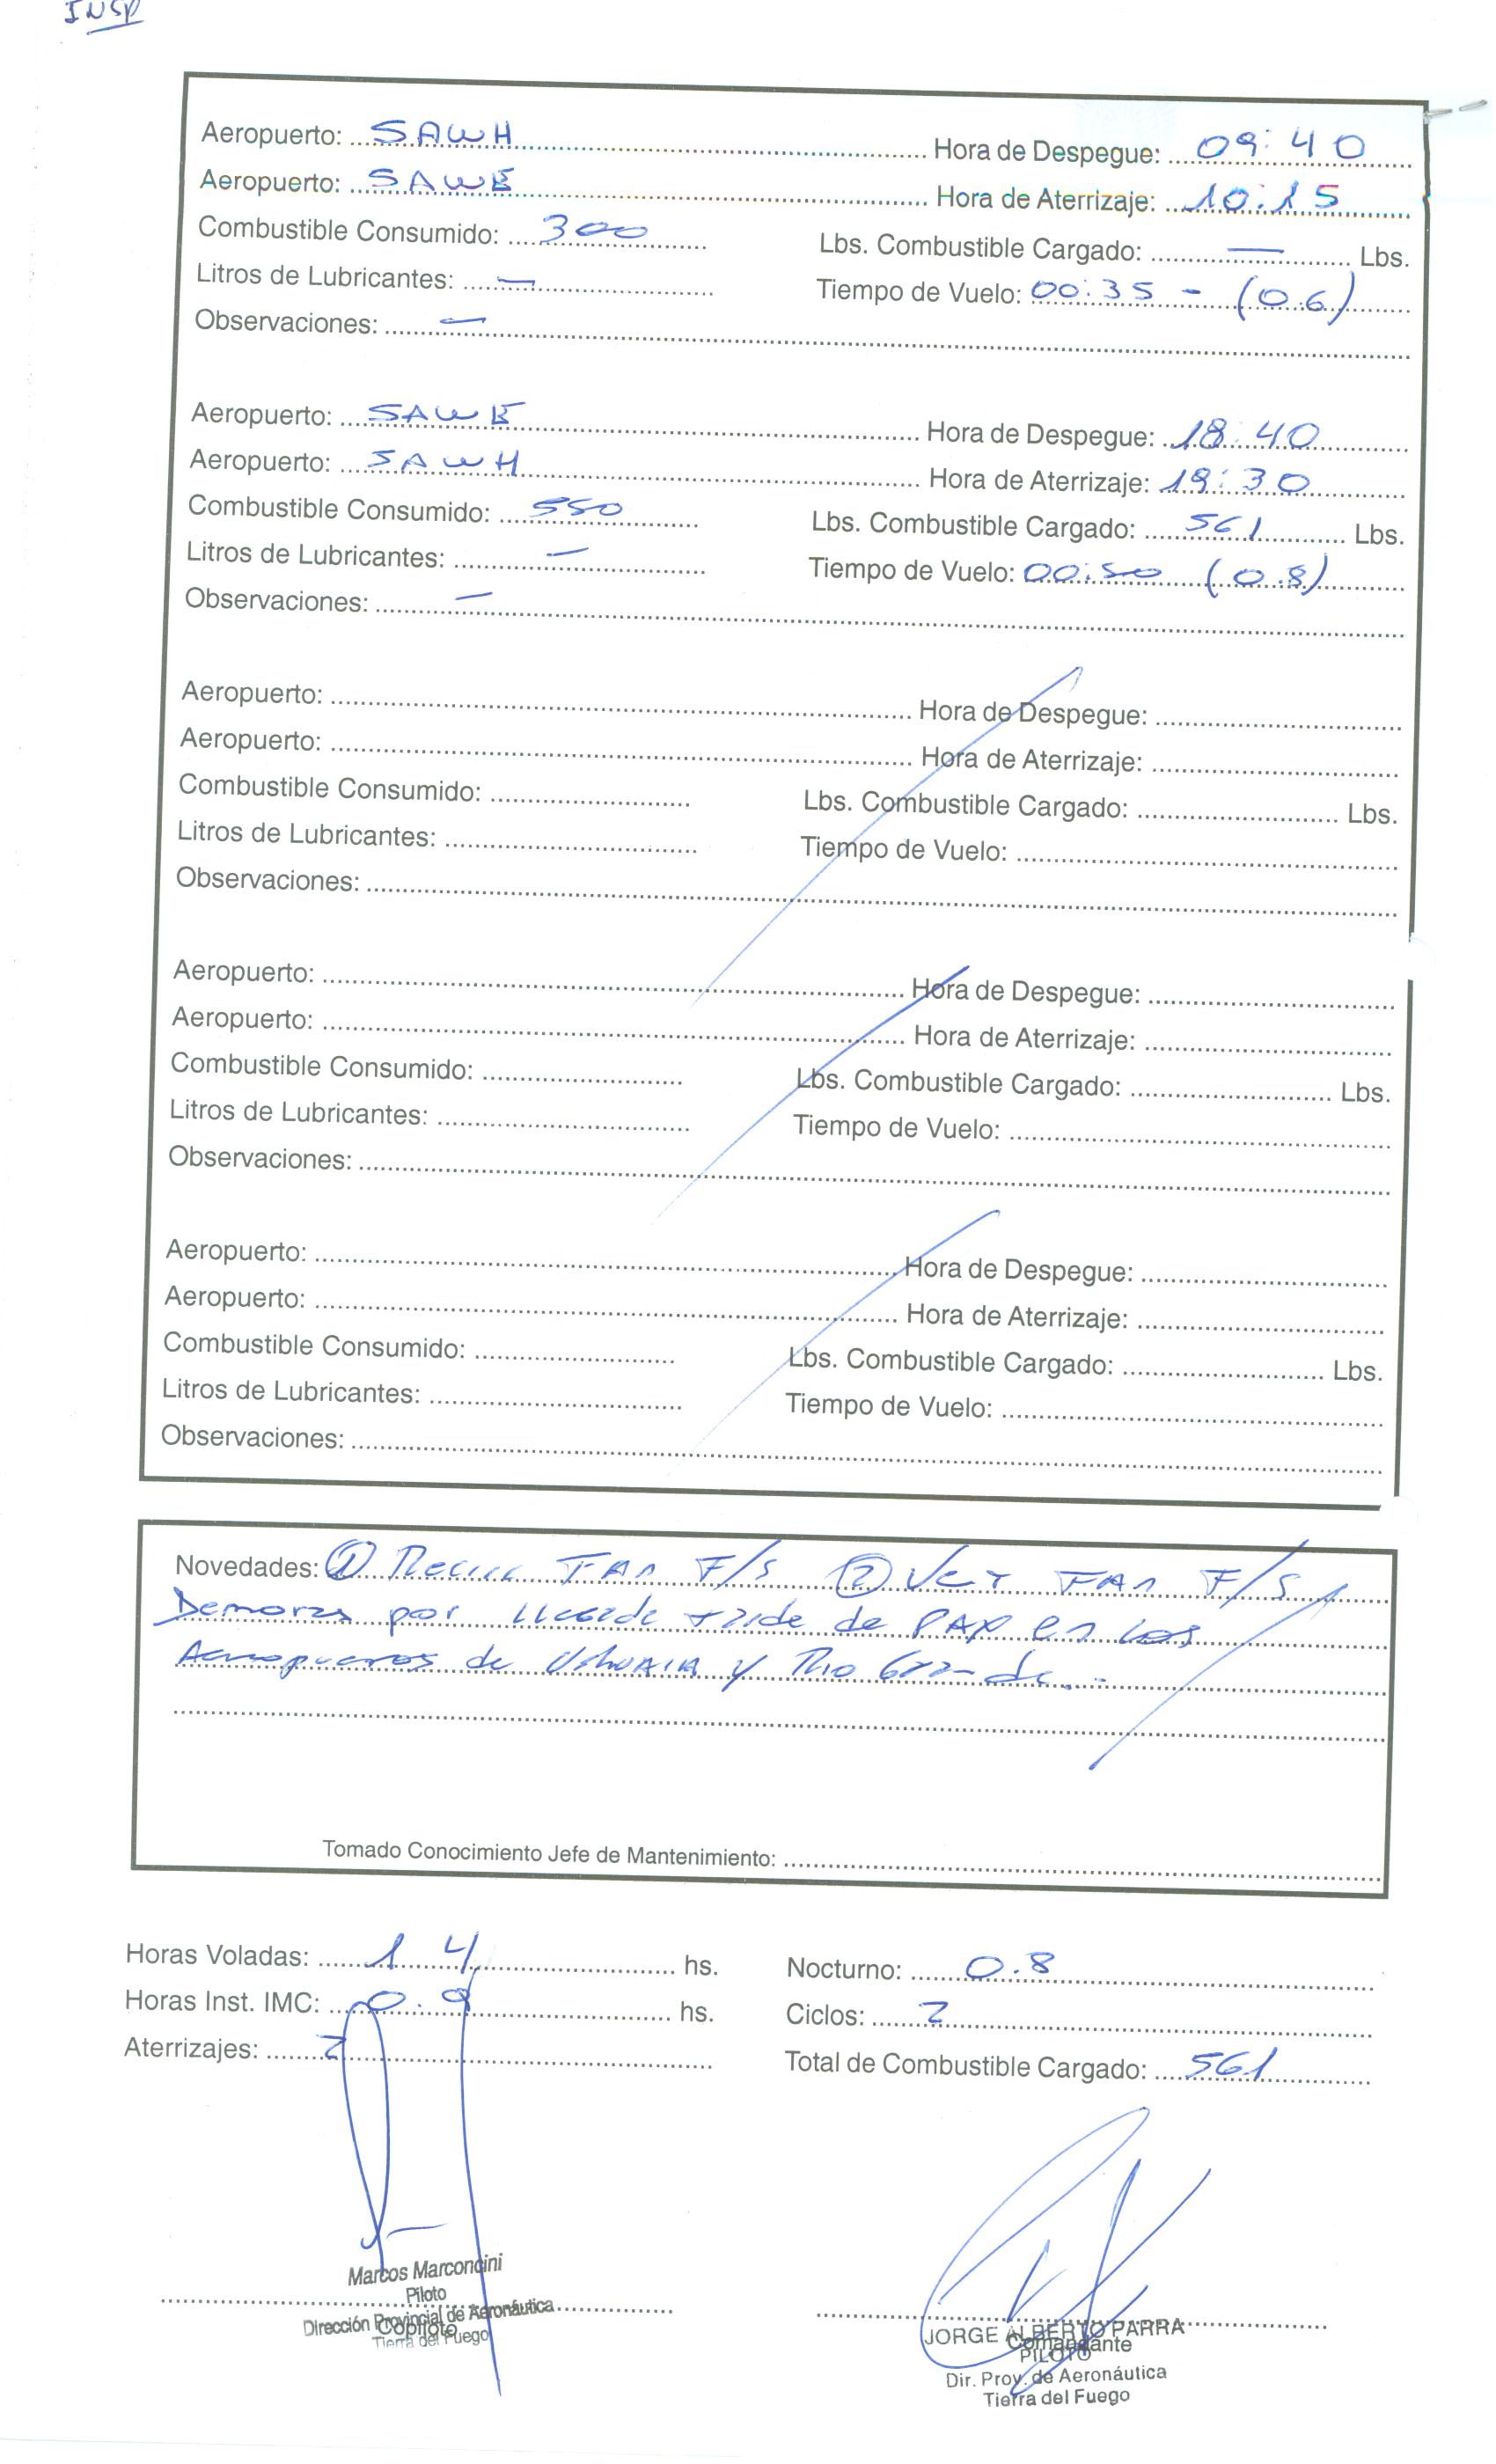 INSP
Aeropuerto: SAWH Hora de Despegue: 09:40
Aeropuerto: SAWE Hora de Aterrizaje: 10:15
Combustible Consumido: 300 Lbs. Combustible Cargado: — Lbs.
Litros de Lubricantes: — Tiempo de Vuelo: 00:35 - (0.6)
Observaciones: —
Aeropuerto: SAWE Hora de Despegue: 18:40
Aeropuerto: SAWH Hora de Aterrizaje: 19:30
Combustible Consumido: 550 Lbs. Combustible Cargado: 561 Lbs.
Litros de Lubricantes: — Tiempo de Vuelo: 00:50 (0.8)
Observaciones: —
Aeropuerto: Hora de Despegue:
Aeropuerto: Hora de Aterrizaje:
Combustible Consumido: Lbs. Combustible Cargado: Lbs.
Litros de Lubricantes: Tiempo de Vuelo:
Observaciones:
Aeropuerto: Hora de Despegue:
Aeropuerto: Hora de Aterrizaje:
Combustible Consumido: Lbs. Combustible Cargado: Lbs.
Litros de Lubricantes: Tiempo de Vuelo:
Observaciones:
Aeropuerto: Hora de Despegue:
Aeropuerto: Hora de Aterrizaje:
Combustible Consumido: Lbs. Combustible Cargado: Lbs.
Litros de Lubricantes: Tiempo de Vuelo:
Observaciones:
Novedades: ① FAn F/S ② FAn F/S
Demoras por de PAX en los
de Ushuaia y Rio Grande..
Tomado Conocimiento Jefe de Mantenimiento:
Horas Voladas: 1 4 hs. Nocturno: 0.8
Horas Inst. IMC: 0.9 hs. Ciclos: 2
Aterrizajes: 2 Total de Combustible Cargado: 561
Marcos Marconcini
Piloto
Dirección Provincial de Aeronáutica
Copiloto
Tierra del Fuego
JORGE ALBERTO PARRA
Comandante
PILOTO
Dir. Prov. de Aeronáutica
Tierra del Fuego